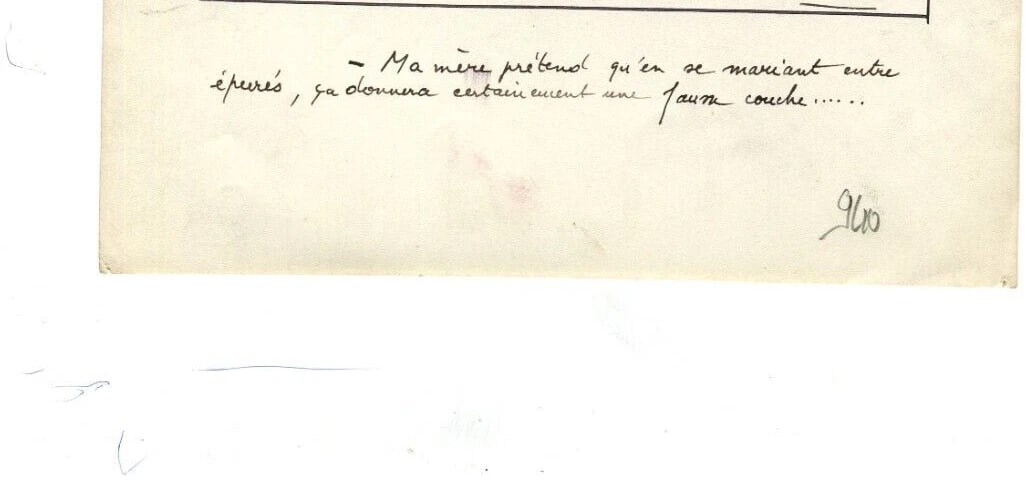 - Ma mère prétend qu'en se mariant entre
épurés, ça donnera certainement une fausse couche......
940